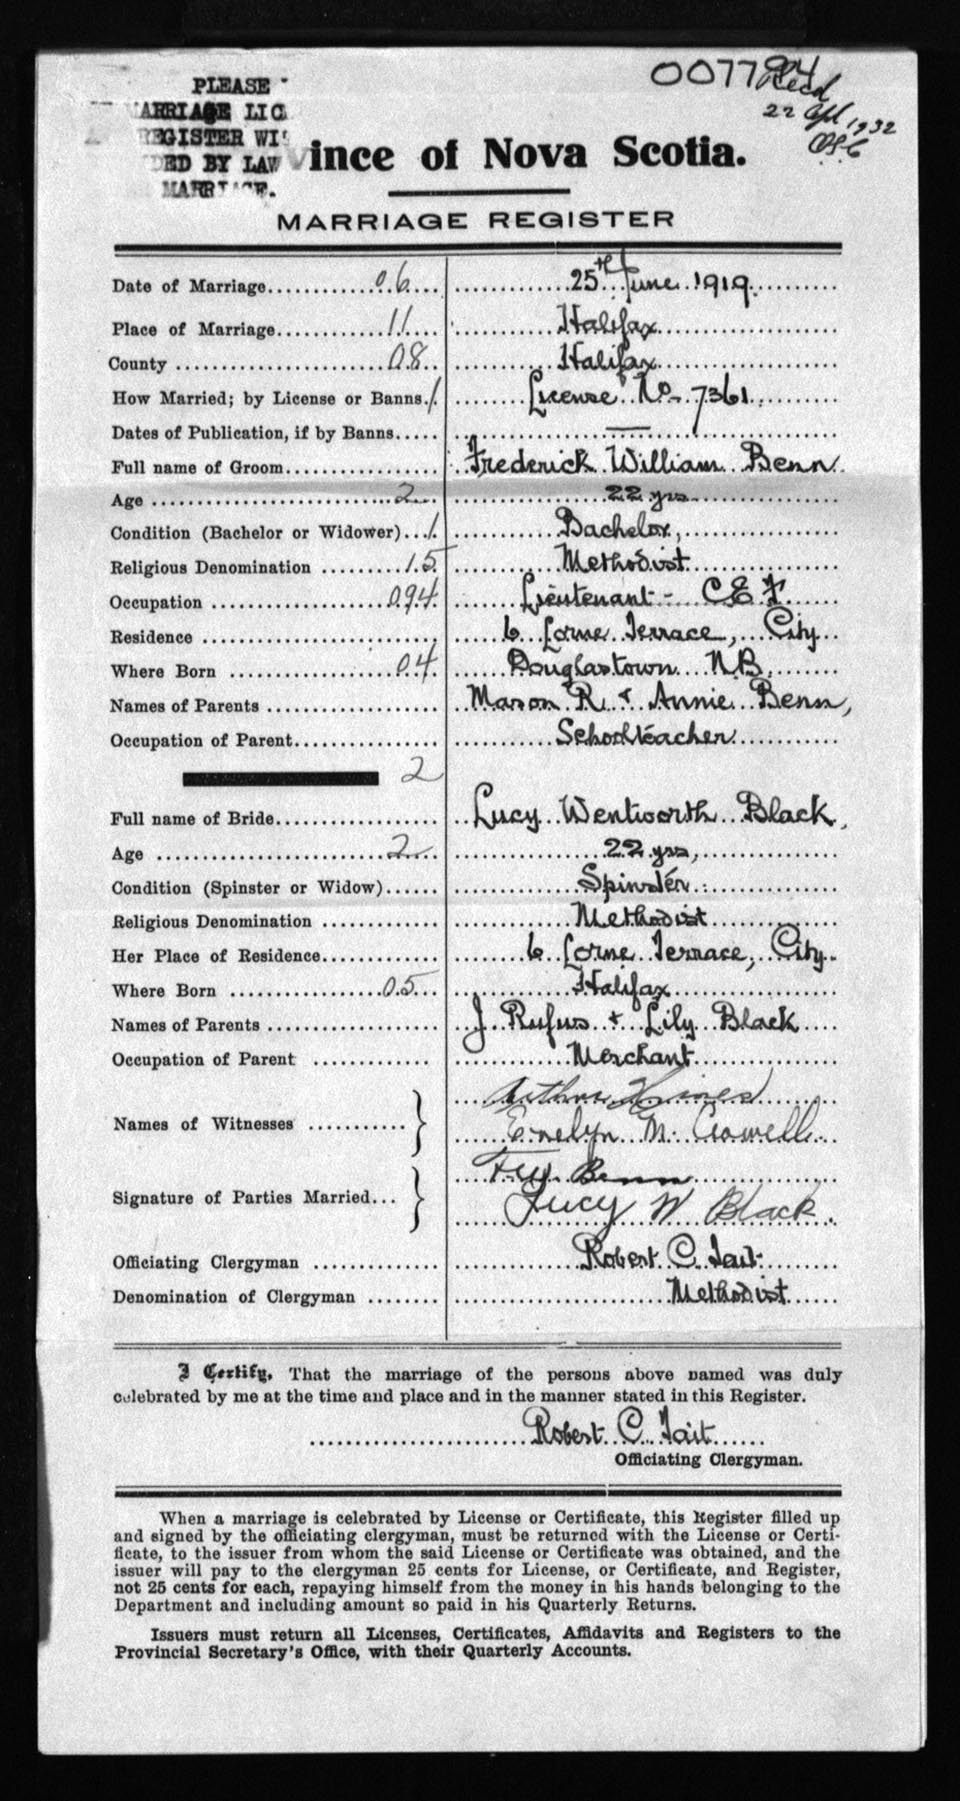 PLEASE
MARRIAGE LIC
REGISTER WI
DED BY LAW
MARRIAGE.
007794
Recd
22 Apl 1932
Province of Nova Scotia.
MARRIAGE REGISTER
Date of Marriage 06 25th June 1919.
Place of Marriage 11 Halifax
County 08 Halifax
How Married; by License or Banns 1 License No- 7361
Dates of Publication, if by Banns —
Full name of Groom Frederick William Benn
Age 2 22 yrs
Condition (Bachelor or Widower) 1 Bachelor,
Religious Denomination 15 Methodist
Occupation 094 Lieutenant - C E F
Residence 6 Lorne Terrace, City
Where Born 04 Douglastown N.B.
Names of Parents Mason R. & Annie Benn,
Occupation of Parent Schoolteacher
2
Full name of Bride Lucy Wentworth Black,
Age 2 22 yrs,
Condition (Spinster or Widow) Spinster
Religious Denomination Methodist
Her Place of Residence 6 Lorne Terrace, City
Where Born 05 Halifax
Names of Parents J Rufus & Lily Black
Occupation of Parent Merchant
Arthur Hines
Names of Witnesses
Evelyn M. Crowell
F.W. Benn
Signature of Parties Married
Lucy W Black
Officiating Clergyman Robert C. Tait
Denomination of Clergyman Methodist
I Certify, That the marriage of the persons above named was duly
celebrated by me at the time and place and in the manner stated in this Register.
Robert C. Tait
Officiating Clergyman.
When a marriage is celebrated by License or Certificate, this Register filled up
and signed by the officiating clergyman, must be returned with the License or Certi-
ficate, to the issuer from whom the said License or Certificate was obtained, and the
issuer will pay to the clergyman 25 cents for License, or Certificate, and Register,
not 25 cents for each, repaying himself from the money in his hands belonging to the
Department and including amount so paid in his Quarterly Returns.
Issuers must return all Licenses, Certificates, Affidavits and Registers to the
Provincial Secretary's Office, with their Quarterly Accounts.